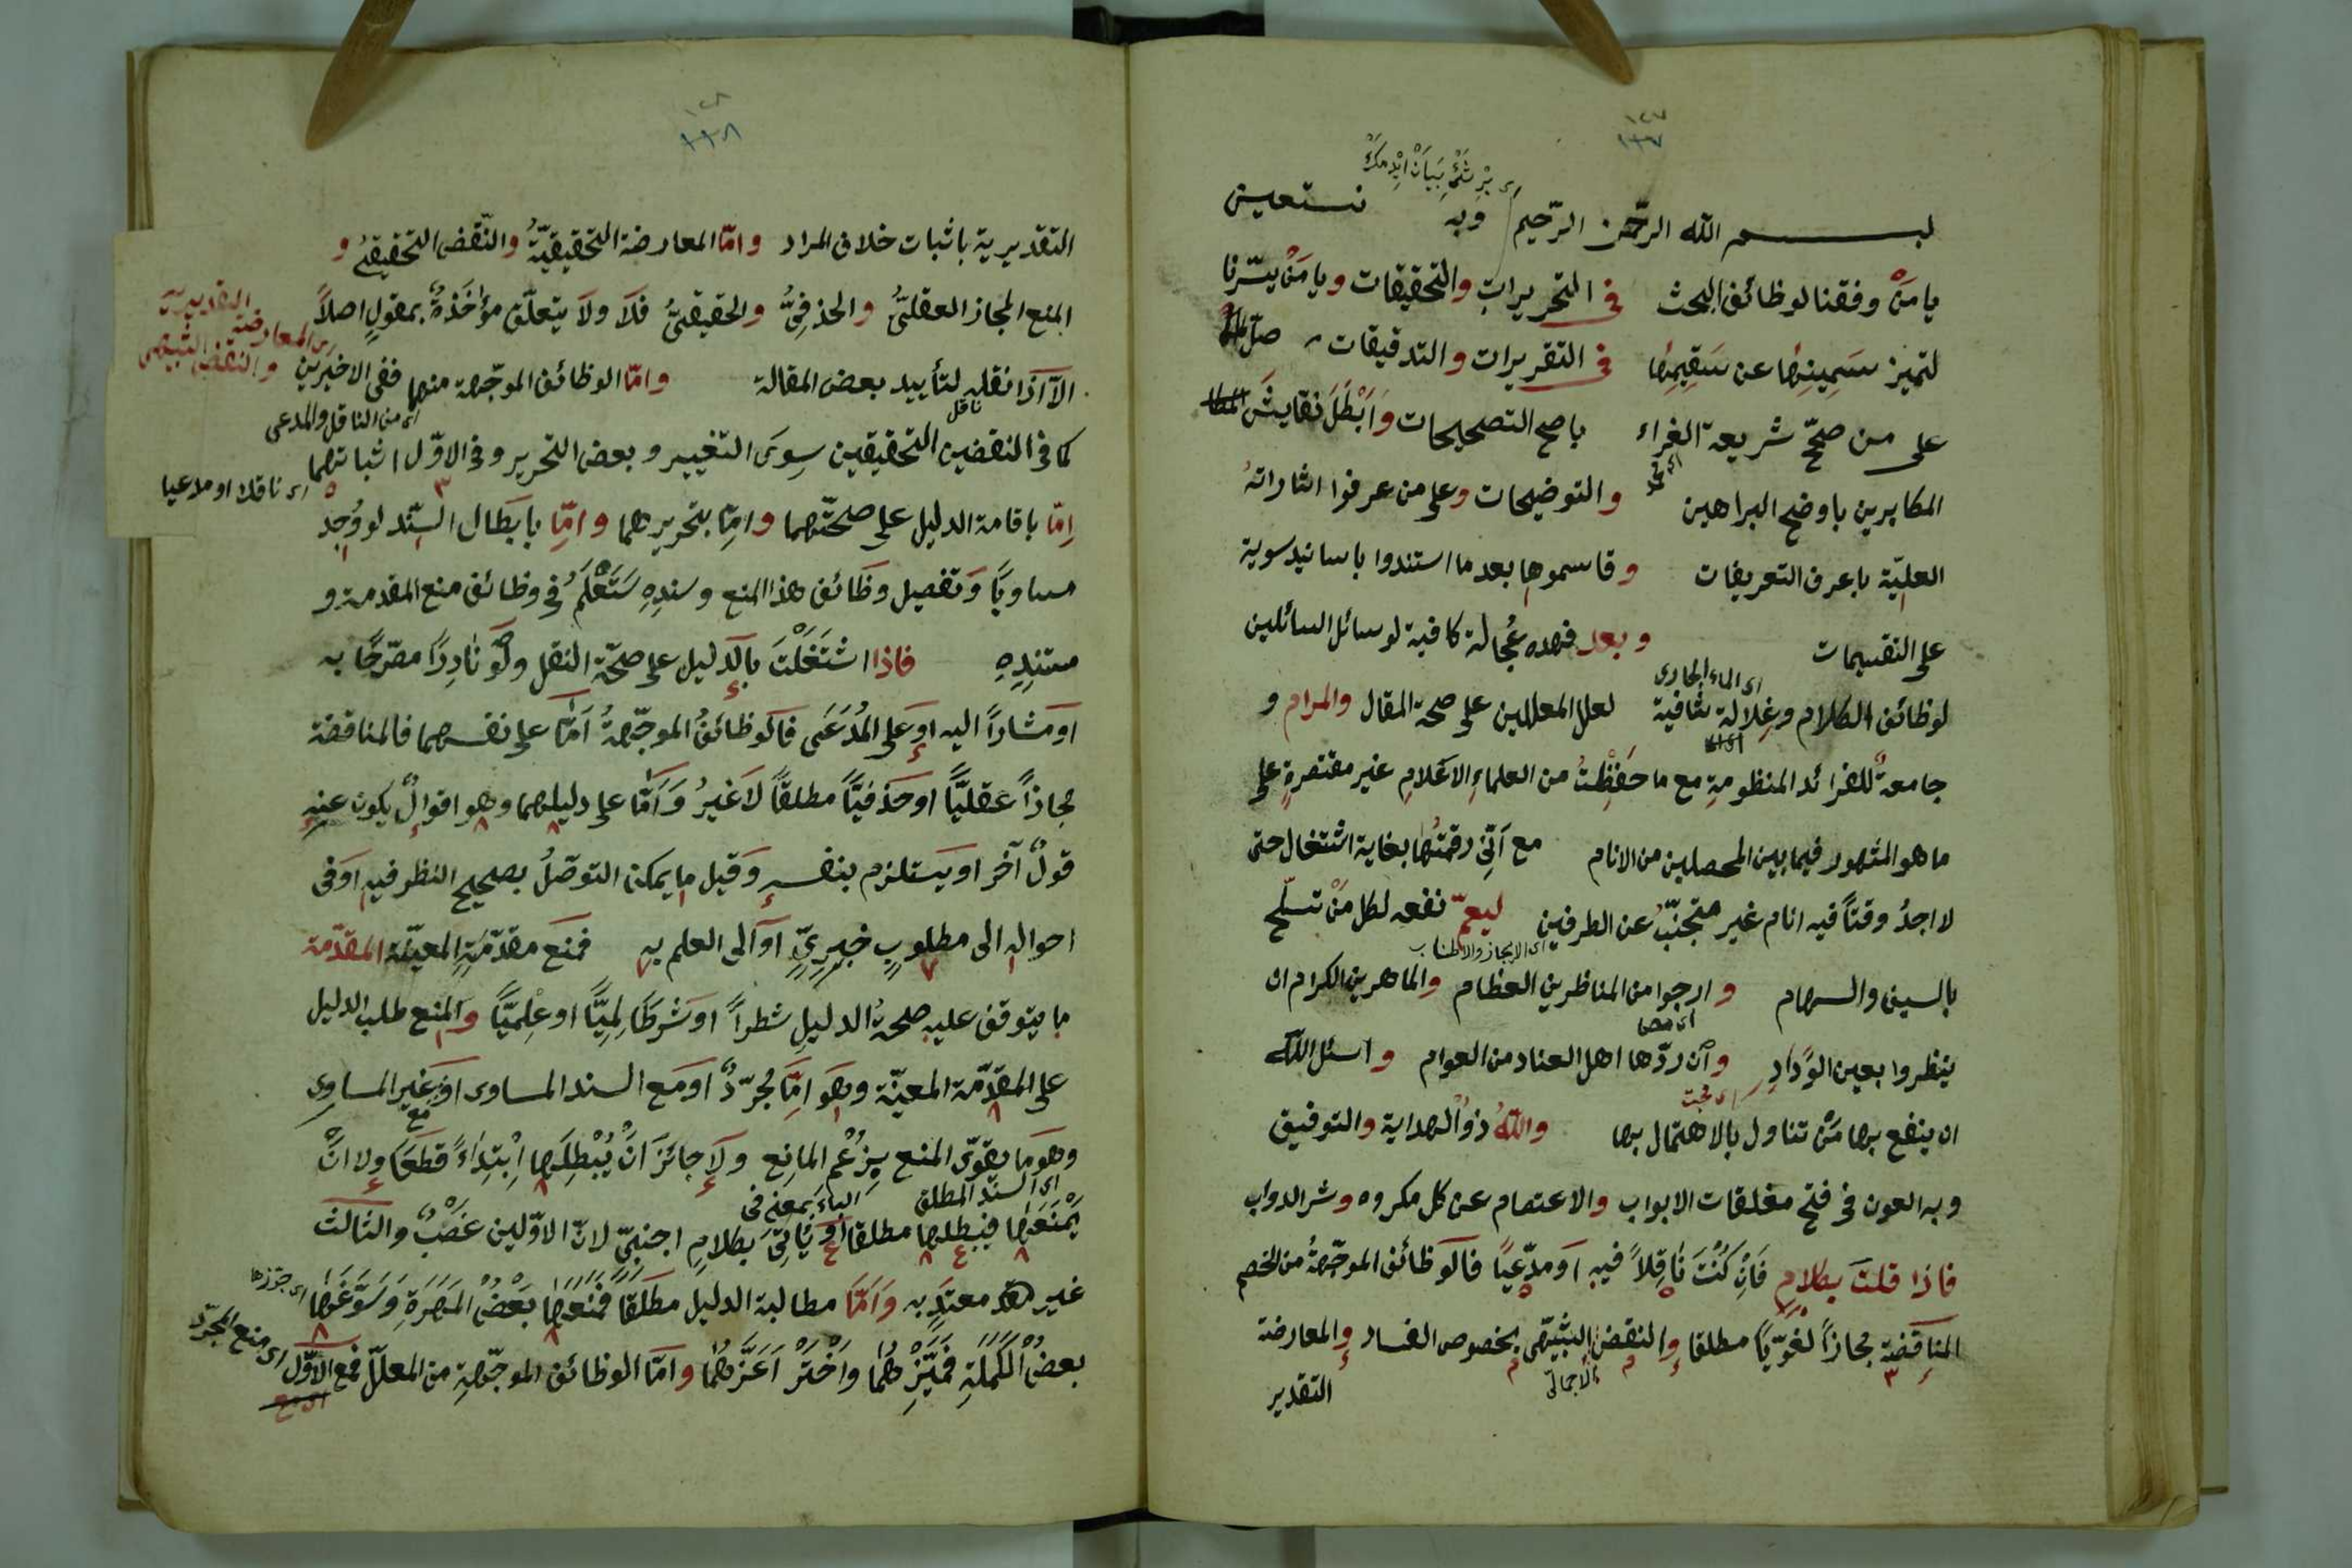 ١٢٧
اى بِرْ شَىْءٍ بَيَانْ اِيْدِمَكْ
بسم الله الرّحمن الرّحيم وبه نستعين
يا مَنْ وفقنا لوظائف البحث فى التحريرات والتحقيقات ويا مَنْ يسّرنا
لتميز سَمِينِها عن سَقِيمِها فى التقريرات والتدقيقات صلّ
على من صحّح شريعة الغراء باصح التصحيحات وَاَبْطَلَ نقايش
المكابرين باوضح البراهين والتوضيحات وعلى من عرفوا اشاراته
العليّة باعرف التعريفات وقاسموها بعد ما استندوا باسانيد سوية
على التقسيمات وبعد فهذه عُجالة كافية لوسائل السائلين
اى الماء الجارى
لوظائف الكلام وغِلالة شافية لعلل المعللين على صحة المقال والمرام و
جامعةٌ للفرائد المنظومةِ مع ما حَفِظْتُ من العلماءِ الاعَلامِ غير مقتصرةٍ على
ما هو المشهور فيما بين المحصلين من الانام مع اَنّى رقمتُها بغاية اشتغال حتى
لا اجدُ وقتاً فيه انام غير متجنّب عن الطرفين ليعمّ نفعه لكل مَنْ تسلّح
اى الايجاز والاطناب
بالسيف والسهام وارجوا من المناظرين العظام والماهرين الكرام ان
ينظروا بعين الوَدادِ وان ردّها اهل العناد من العوام واسئل الله
اى محبت
ان ينفع بها مَنْ تناول بالاهتمال بها واللهُ ذوُ الهداية والتوفيق
وبه العون فى فتح مغلقات الابواب والاعتصام عن كل مكروه وشر الدواب
فاذا قلتَ بكلامٍ فَاِنْ كُنْتَ نَاقِلاً فيه اَو مدّعيًا فالوظائف الموجّهةُ من الخصم
المناقضة مجازاً لغويّاً مطلقا والنقض الشبيهى بخصوص الفساد والمعارضة
الاجمالىّ
التقدير
١٢٨
التقديرية باثبات خلاف المراد وامّا المعارضة التحقيقيّةُ والنّقض التحقيقىُ و
المنع المجاز العقلىُّ والحذفِىُّ والحقيقىُّ فلَا ولَا يتعلّق مؤاخَذةٌ بمقولٍ اصلاً
التقديرية
اى المعارضة
والنقض الشبيهى
الّا اذا نقله لتأييد بعض المقالة وامّا الوظائف الموجّهة منهما ففى الاخيرين
ناقل
اى من الناقل والمدعى
كما فى النقضين التحقيقين سِوىَ التغيير وبعض التحرير وفى الاوّل اثباتهما
اى ناقلا او مدعيا
اِمّا باقامة الدليل على صحّتهما وامّا بتحريرهما وامّا بابطال السّند لو وُجِد
مساويًا وَتفصيل وظَائف هذا المنع وسندِهِ سَتَعْلَمُ فى وظائف منع المقدمة و
مستندِهِ فاذا اشتَغَلْتَ بالدليل على صحّة النقل ولَو نادِراً مصّرحًا به
اَو مشاراً اليه اَو على المُدَعَى فالوظائفُ الموجّهةُ اَمّا على نفسهما فالمناقضة
مجازاً عقليّاً اوحَذفيّاً مطلقاً لَاغيرُ وَاَمّا على دليلهما وهو اقوالٌ يكون عنهِ
قولٌ آخَر او يَستلزم بنفسهِ وَقيل ما يمكن التوصّلُ بصحيح النظر فيهِ اَوفى
احواله الى مطلوبٍ خبرِىٍّ اَو الى العلم به فمنَع مقدّمَتِهِ المعيّنة المقدّمة
ما يتوقف عليه صحةُ الدليلِ شطراً اَو شرطًا لِميّاً او عِلميّاً والمنع طلب الدليل
على المقدّمة المعيّنة وهوَ امّا مُجرّدٌ اَو مَع السند المساوى اَو غير المساوى
وهوَ مَا يقوّى المنع بِزُعْمِ المانع ولَا جائزَ انْ يُبْطِلَها اِبْتِداءً قطعًا ولا انَّ
اى السند المطلق
الباء بمعنى فى
يَمْنَعَها فيبطلها مطلقا اَو يَأتِىَ بكلامٍ اجنبىّ لانّ الاوّلين غَصْبٌ والثالث
غير معتدٍ به وَاَمّا مطالبة الدليل مطلقا فمنعَها بَعْضُ المَهَرَةِ وَسَوَّغَها
اى جوّزها
بعضُ الكَمَلَةِ فَمَيِّزْهُمَا وَاخْتَرْ اَعَزَّهُمَا وامّا الوظائف الموجّهة من المعلّل فمع الاوّل
اى منع المجرّد